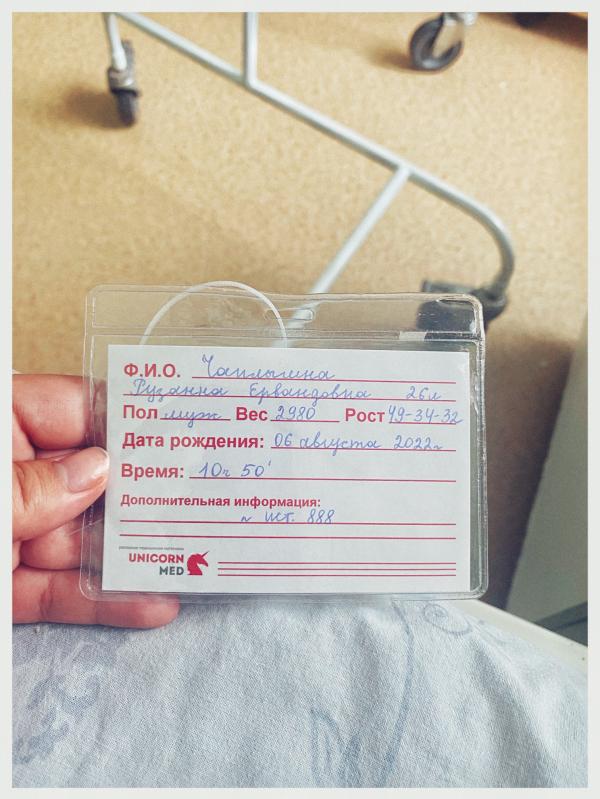 Ф.И.О. Чаплыгина
Рузанна Ервандовна 26л
Пол муж Вес 2980 Рост 49-34-32
Дата рождения: 06 августа 2022г
Время: 10ч 50'
Дополнительная информация:
ист. 888
UNICORN
MED